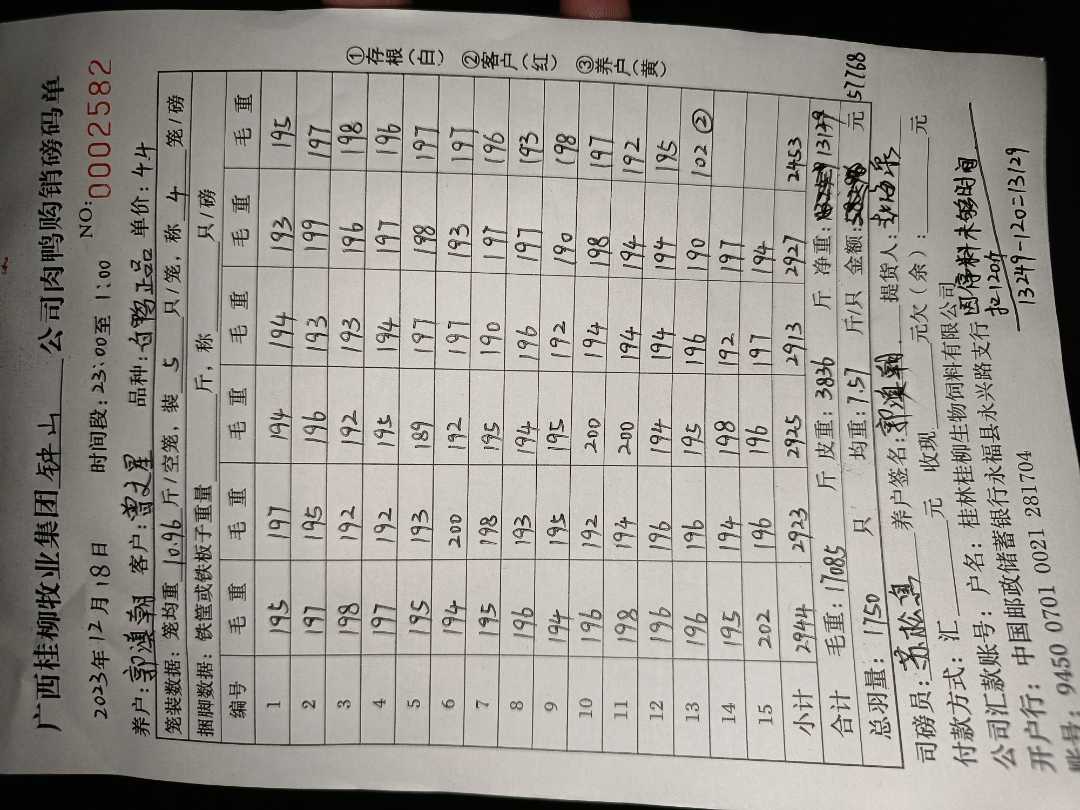 广西桂柳牧业集团 钟山 公司肉鸭购销磅码单
2023年12月18日 时间段:23:00至1:00 NO:0002582
养户:郭满朝 客户:曾文星 品种:白鸭正品 单价:4.4
笼装数据:笼均重 10.96 斤/空笼,装 5 只/笼,称 4 笼/磅
捆脚数据:铁筐或铁板子重量 斤,称 只/磅
编号 毛重 毛重 毛重 毛重 毛重 毛重
1 195 197 194 194 193 195
2 197 195 196 193 199 197
3 198 192 192 193 196 198
4 197 192 195 194 197 196
5 195 193 189 197 198 197
6 194 200 192 197 193 197
7 195 198 195 190 197 196
8 196 193 194 196 197 193
9 194 195 195 192 190 198
10 196 192 200 194 198 197
11 198 194 200 194 194 192
12 196 196 194 194 194 195
13 196 196 195 196 190 102②
14 195 194 198 192 197
15 202 196 196 197 194
小计 2944 2923 2925 2913 2927 2453
合计 毛重:17085 斤 皮重:3836 斤 净重:13129
总羽量: 1750 只 均重:7.57 斤/只 金额: 元 57768
司磅员: 养户签名:郭满朝 提货人:
付款方式:汇 元 收现 元欠(余): 元
公司汇款账号:户名:桂林桂柳生物饲料有限公司
开户行:中国邮政储蓄银行永福县永兴路支行
账号:9450 0701 0021 281704
因停料未够时间
扣120斤
13249-120=13129
①存根(白) ②客户(红) ③养户(黄)